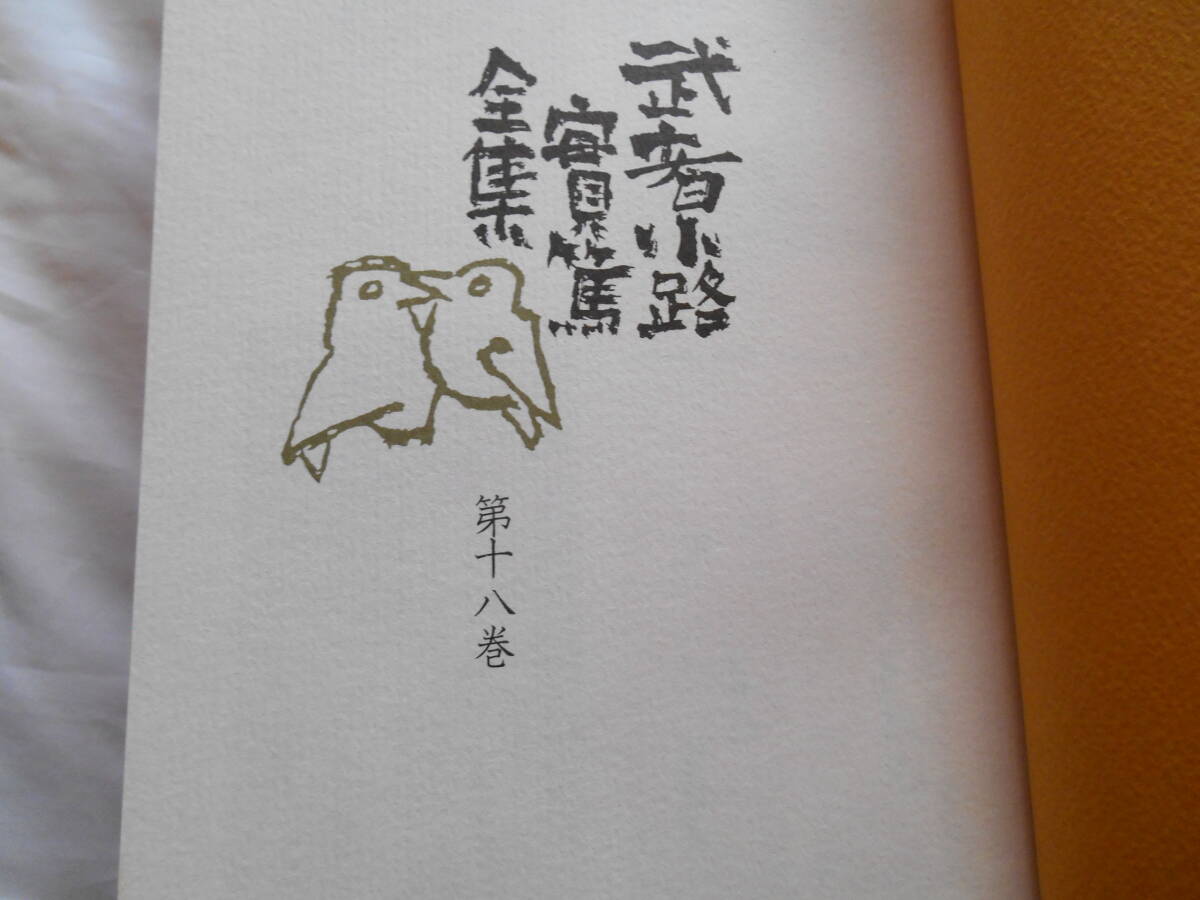 武者小路
實篤
全集
第十八巻